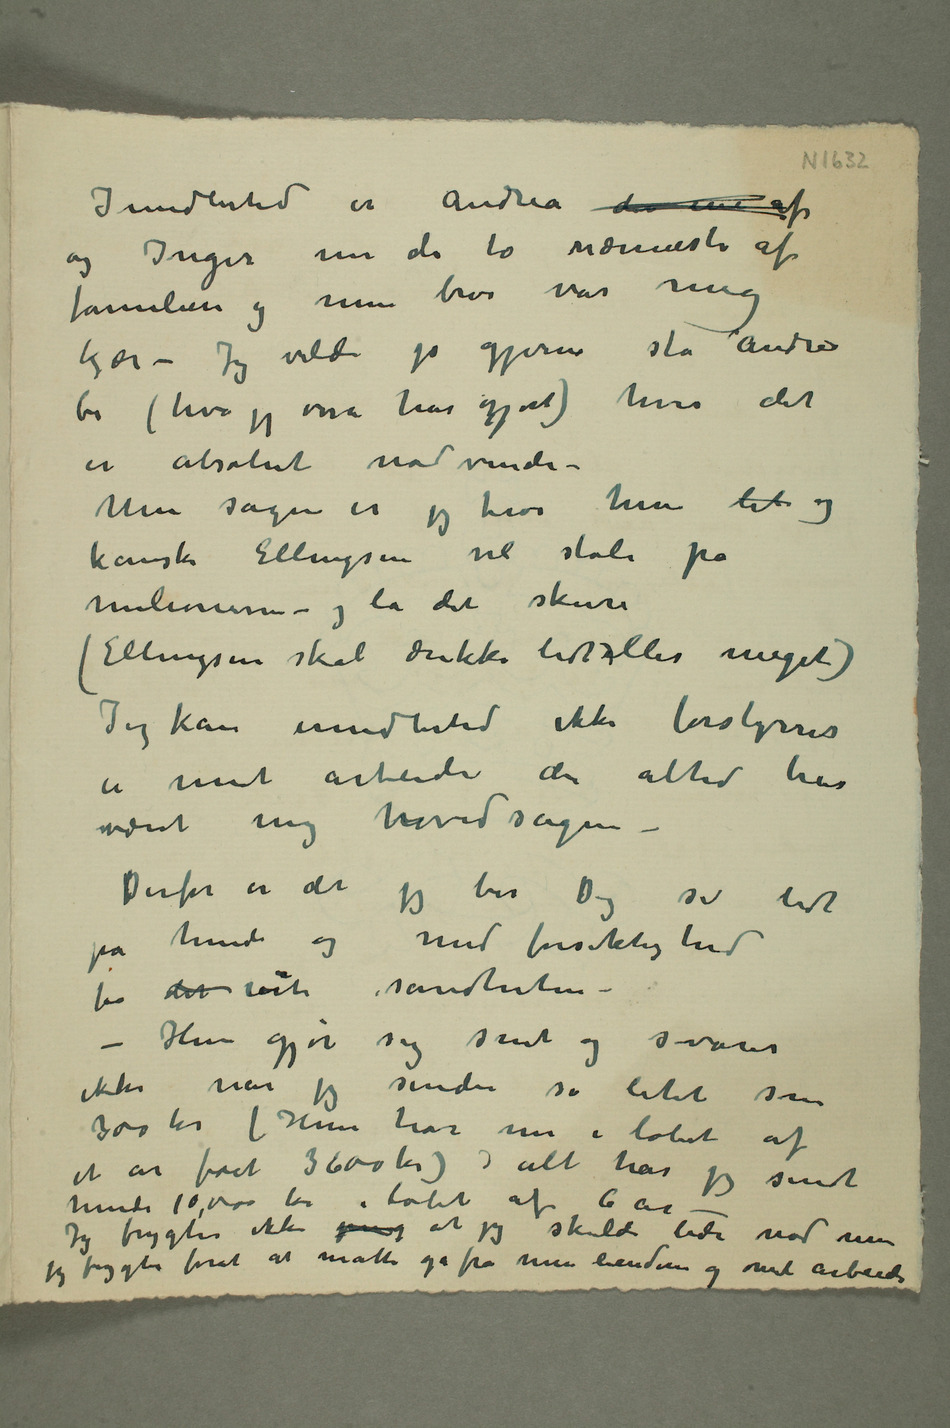 N1632
Imidlertid er Andrea den ene af
og Inger nu de to nærmeste af
familien og min bror var mig
kjær – Jeg vilde jo gjerne stå Andrea
bi (hva jeg osså har gjort) hvis det
er absolut nødvendi –
Men sagen er jeg tror hun lit og
kanske Ellingsen vil stole på
milionæren – og la det skure
(Ellingsen skal drikke lidt eller meget)
Jeg kan imidlertid ikke forstyrres
i mit arbeide der altid har
været mig hovedsagen –
Derfor er det jeg ber Dig se lidt
på hende og med forsiktighed
få det vite sandheten –
– Hun gjør sig snet og svarer
ikke når jeg sender så litet som
300 kr (Hun har nu i løbet af
et år fåt 3600 kr) I alt har jeg sendt
hende 10,000 kr i løbet af 6 år –
Jeg frygter ikke at jeg skulde lide nød men
jeg frygter foråt at måtte gå fra min eiendom og mit arbeide